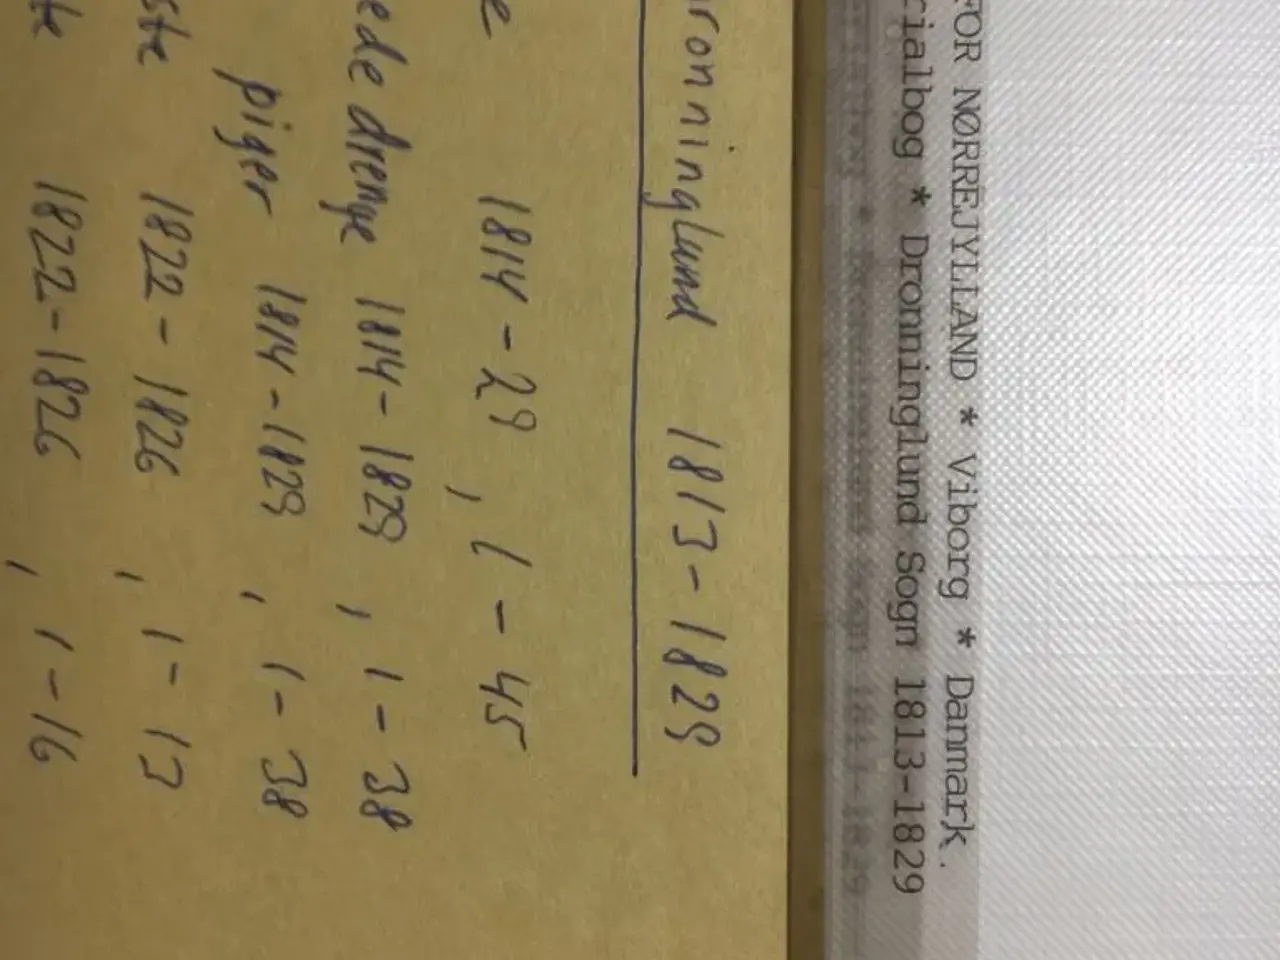 FOR NØRREJYLLAND * Viborg * Danmark.
rialbog * Dronninglund Sogn 1813-1829
ronninglund 1813-1829
e 1814-29, 1-45
ede drenge 1814-1829, 1-38
piger 1814-1829, 1-38
ste 1822-1826, 1-13
te 1822-1826, 1-16